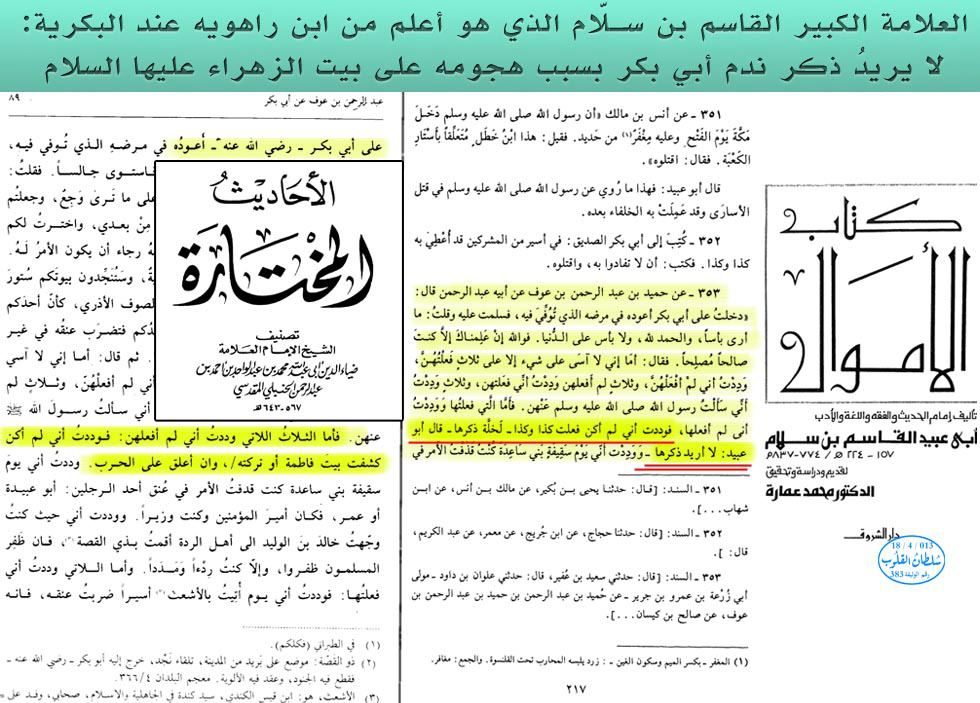 العلامة الكبير القاسم بن سـلّام الذي هو أعلم من ابن راهويه عند البكرية:
لا يريدُ ذكر ندم أبي بكر بسبب هجومه على بيت الزهراء عليها السلام
٣٥١ ـ عن أنس بن مالك «أن رسول الله صلى الله عليه وسلم دَخَلَ
مَكَّةَ يَوْمَ الفَتْح وعليه مِغْفَرٌ(١) من حَديد. فقيل: هذا ابْنُ خَطَل مُتَعَلِّقاً بأَسْتَارِ
الكَعْبَة. فقال: اقتلوه».
قال أبو عبيد: فهذا ما رُوي عن رسول الله صلى الله عليه وسلم في قتل
الأسارَى وقد عَمِلَتْ به الخلفاء بعده.
٣٥٢ ـ كُتِبَ إلى أبي بكر الصديق: في أسير من المشركين قد أُعْطِيَ به
كذا وكذا. فكتب: أن لا تفادوا به، واقتلوه.
٣٥٣ ـ عن حميد بن عبد الرحمن بن عوف عن أبيه عبد الرحمن قال:
«دخلتُ على أبي بكر أعوده في مرضه الذي تُوُفِّيَ فيه، فسلمت عليه وقلتُ: ما
أرى بأساً، والحمد لله، ولا يأس على الدُّنيا. فوالله إنْ عَلِمناكَ إلاَّ كنتَ
صالحاً مُصلِحاً. فقال: أمَا إني لا آسَى على شيء إلا على ثلاثٍ فَعَلْتُهُنَّ،
وَدِدْتُ أني لمْ أفْعَلْهُنَّ، وثلاثٍ لم أفعلهن وَدِدْتُ أنِّي فعلتهن، وثلاثٍ وَدِدْتُ
أنِّي سألْتُ رسولَ الله صلى الله عليه وسلم عَنْهن. فأمَّا الَّتي فعلتُها وَوَدِدْتُ
أني لم أفعلها، فوددت أني لم أكن فعلت كذا وكذا ـ لخلَّة ذكرها ـ قال أبو
عبيد: لا أريد ذكرها ـ وَوَدِدْتُ أنِّي يَوْمَ سَقِيفَةِ بَنِي سَاعِدَةَ كُنْتُ قذفْتُ الأمر في
٣٥١ ـ السند: [قال: حدثنا يحيى بن بُكير، عن مالك بـن أنس، عن ابـن
شهاب...].
٣٥٢ ـ السند: [قال: حدثنا حجاج، عن ابن جُريج، عن معمر، عن عبد الكريم،
قال: ].
٣٥٣ ـ السند: [قال: حدثني سعيد بن عُفير، قال: حدثني علوان بن داود ـ مولى
أبي زُرْعة بن عمرو بن جرير ـ عن حُميد بن عبد الرحمن بن حميد بن عبد الرحمن بن
عوف، عن صالح بن كيسان...].
(١) المغفر ـ بكسر الميم وسكون الغين ـ: زرد يلبسه المحارب تحت القلنسوة. والجمع: مغافر.
٢١٧
عبد الرحمن بن عوف عن أبي بكر
٨٩
على أبي بكر ـ رضي الله عنه ـ أعودُه في مرضهِ الذي تُوفي فيه،
فاستوى جالساً. فقلتُ:
على ما تَرى وَجِعٌ، وجعلتُم
مِنْ بعدي، واخترتُ لكم
رجاء أن يكون الأمرُ لَهُ.
وسَتُنَجِّدون بيوتَكم سُتورَ
الصوف الأذري، كأنَّ أحدَكم
فتضرَب عنقُه في غير
ثم قال: أما إني لا آسى
أني لم أفعلْهُنَّ، وثلاثٍ لم
أني سألتُ رسولَ الله ﷺ
عنهن. فأما الثلاثُ اللاتي وددتُ أني لم أفعلهن: فوددتُ أني لم أكن
كشفت بيتَ فاطمة أو تركته/، وان أعلق على الحرب. وددتُ أني يومَ
سقيفة بني ساعدة كنت قذفتُ الأمر في عُنق أحد الرجلين: أبو عبيدة
أو عمر، فكان أميرَ المؤمنين وكنت وزيراً. ووددت أني حيث كنتُ
وجّهتُ خالدَ بنَ الوليد الى أهل الردة أقمتُ بذي القصة(٢)، فـان ظَفِر
المسلمون ظفروا، وإلاَّ كنتُ رِدْءاً ومَـدَداً. وأما الـلاتي وددتُ أني
فعلتُها: فوددتُ أني يوم أُتيتُ بالأشعث(٣) أسيراً ضربتُ عنقَه، فـانه
(١) في الطبراني (فكلكم).
(٢) ذو القَصَّة: موضع على بَريد من المدينة، تلقاء نَجْد، خرج إليه أبو بكر ـ رضي الله عنه ـ
فقطع فيه الجنود، وعقد فيه الألوية. معجم البلدان ٣٦٦/٤.
(٣) الأشعث، هو: ابن قيس الكندي، سيد كندة في الجاهلية والاسلام، صحابي، وفد على
الأحاديث
المختارة
تصنيف
الشيخ الإمام العلامة
ضياء الدين أبي عبد الله محمد بن عبد الواحد بن أحمد بن
عبد الرحمن الحنبلي المقدسي
٥٦٧-٦٤٣هـ
كتاب
الأموال
تأليف إمام الحديث والفقه واللغة والأدب
أبي عبيد القاسم بن سلام
١٥٧ - ٢٢٤ هـ / ٧٧٤ - ٨٣٧م
تقديم ودراسة وتحقيق
الدكتور محمد عمارة
دار الشروق
18 / 4 / 013
سُلطانُ القُلُوب
رقم الوثيقة 383